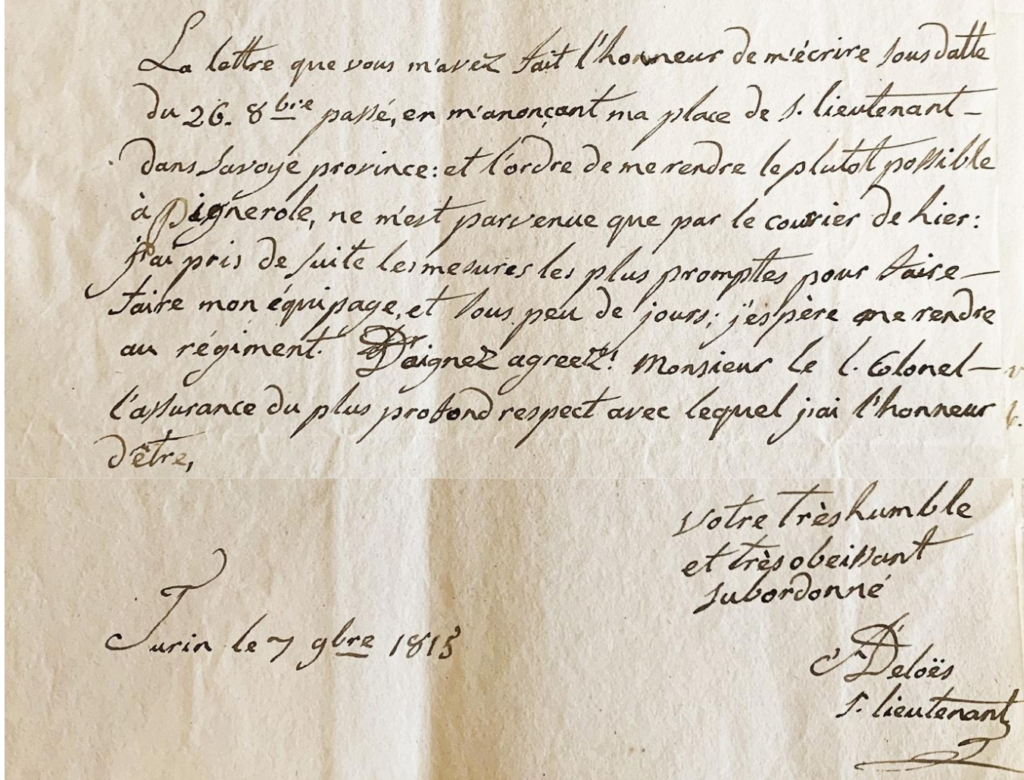 La lettre que vous m'avez fait l'honneur de m'écrire sous datte
du 26. 8bre passé, en m'anonçant ma place de s. lieutenant –
dans Savoye province: et l'ordre de me rendre le plutot possible
à Pignerole, ne m'est parvenue que par le courier de hier:
j'ai pris de suite les mesures les plus promptes pour faire –
faire mon équipage, et sous peu de jours; j'espère me rendre
au régiment. Daignez agreez! Monsieur le l. Colonel –
l'assurance du plus profond respect avec lequel j'ai l'honneur
d'être,
Votre très humble
et très obeissant
subordonné
Turin le 7 9bre 1815
Deloës
s. lieutenant